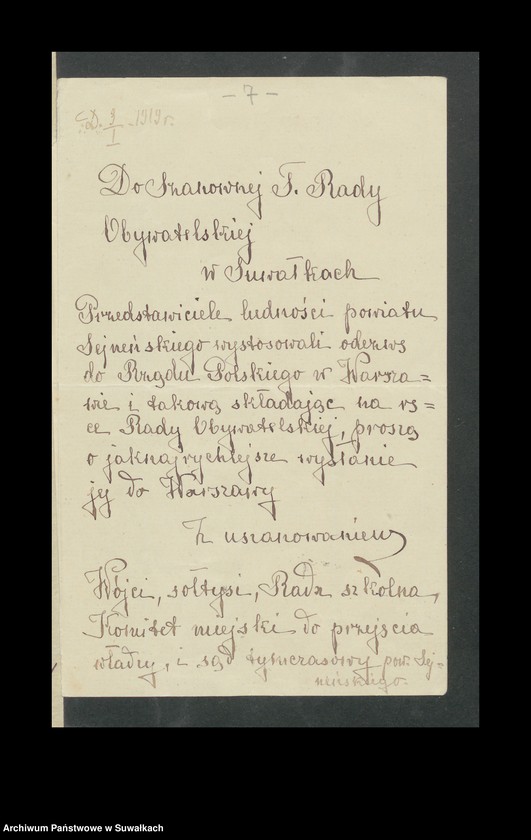 - 7 -
D. 9/I 1919 r.
Do Szanownej T. Rady
Obywatelskiej
w Suwałkach
Przedstawiciele ludności powiatu
Sejneńskiego wystosowali odezwę
do Rządu Polskiego w Warsza=
wie i takową składając na rę=
ce Rady Obywatelskiej, proszą
o jaknajrychlejsze wysłanie
jej do Warszawy
Z uszanowaniem
Wójci, sołtysi, Rada szkolna,
Komitet miejski do przejścia
władzy, i sąd tymczasowy pow. Sej=
neńskiego.
Archiwum Państwowe w Suwałkach